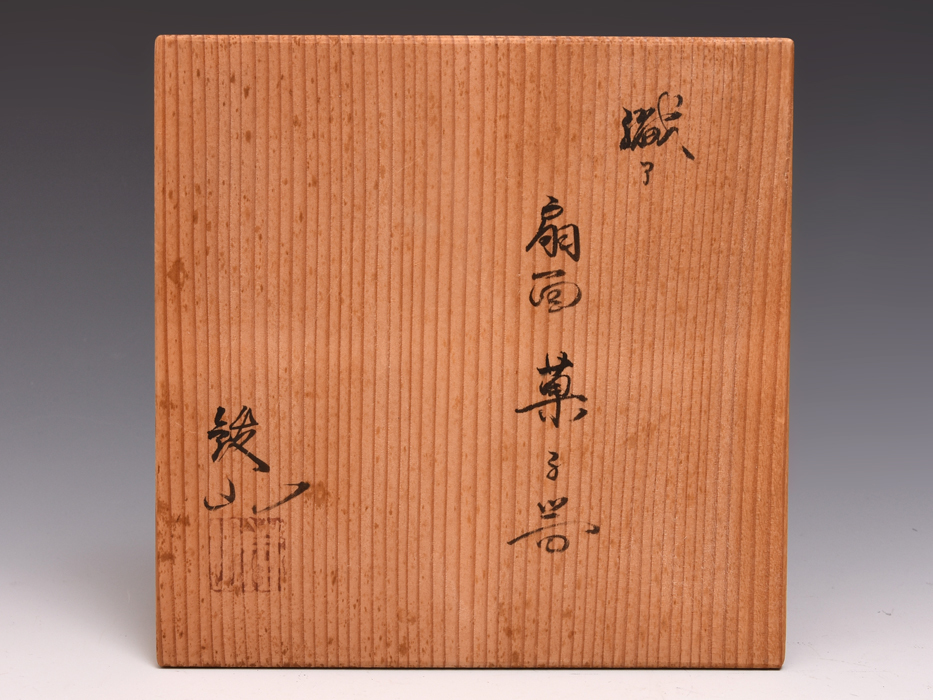 織部
扇面 菓子器
鉄山